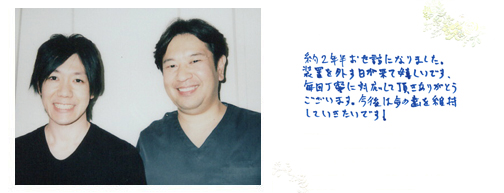 約2年半お世話になりました。
装置を外す日が来て嬉しいです、
毎回丁寧に対応して頂きありがとう
ございます。今後は今の歯を維持
していきたいです!